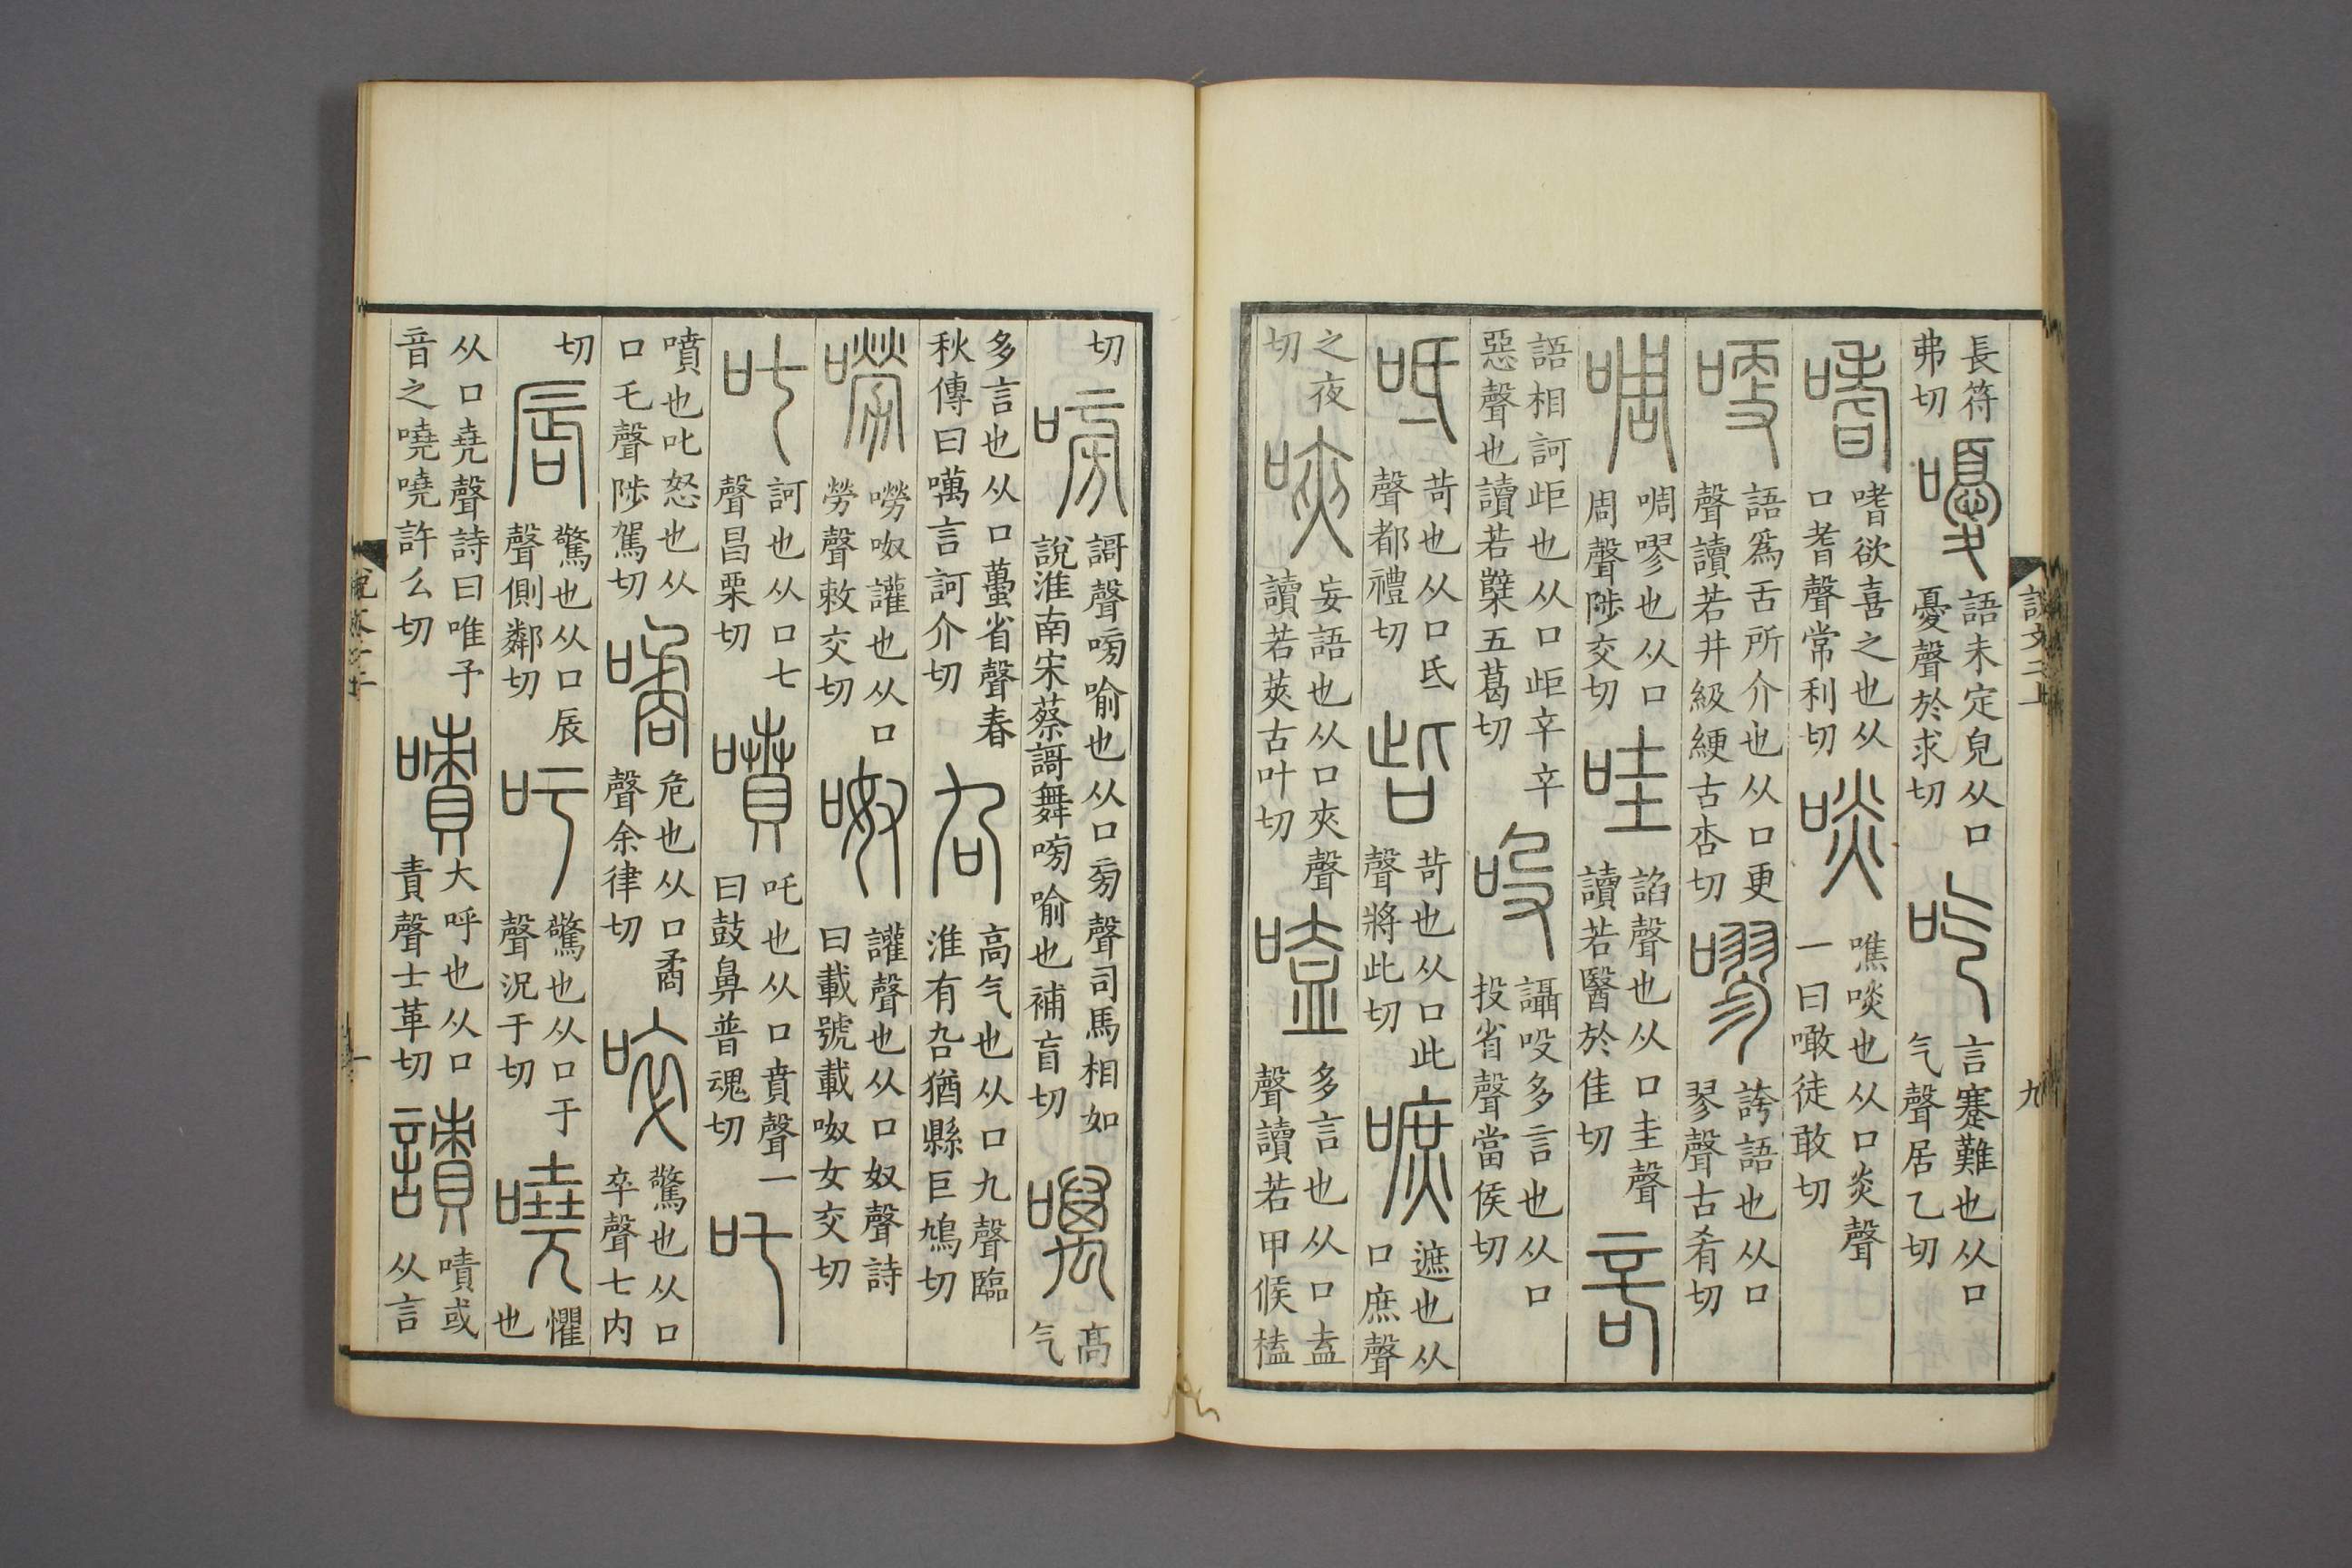 說文二上 九
長符弗切 嚘 語未定皃从口憂聲於求切 吃 言蹇難也从口气聲居乙切
嗜 嗜欲喜之也从口耆聲常利切 啖 噍啖也从口炎聲一曰噉徒敢切
哽 語爲舌所介也从口更聲讀若井級綆古杏切 嘐 誇語也从口翏聲古肴切
啁 啁嘐也从口周聲陟交切 哇 諂聲也从口圭聲讀若醫於佳切 𠱫
語相訶歫也从口歫䇂䇂惡聲也讀若櫱五葛切 吺 讘吺多言也从口投省聲當侯切
呧 苛也从口氐聲都禮切 呰 苛也从口此聲將此切 嗻 遮也从口庶聲
之夜切 唊 妄語也从口夾聲讀若莢古叶切 嗑 多言也从口盍聲讀若甲候榼
切 嗙 謌聲嗙喻也从口㫄聲司馬相如說淮南宋蔡謌舞嗙喻也補盲切 噧 高气
多言也从口蠆省聲春秋傳曰噧言訶介切 叴 高气也从口九聲臨淮有叴猶縣巨鳩切
嘮 嘮呶讙也从口勞聲敕交切 呶 讙聲也从口奴聲詩曰載號載呶女交切
叱 訶也从口七聲昌栗切 噴 吒也从口賁聲一曰鼓鼻普魂切 吒
噴也叱怒也从口乇聲陟駕切 噊 危也从口矞聲余律切 啐 驚也从口卒聲七内
切 唇 驚也从口辰聲側鄰切 吁 驚也从口于聲況于切 嘵 懼也
从口堯聲詩曰唯予音之嘵嘵許么切 嘖 大呼也从口責聲士革切 讀 嘖或从言